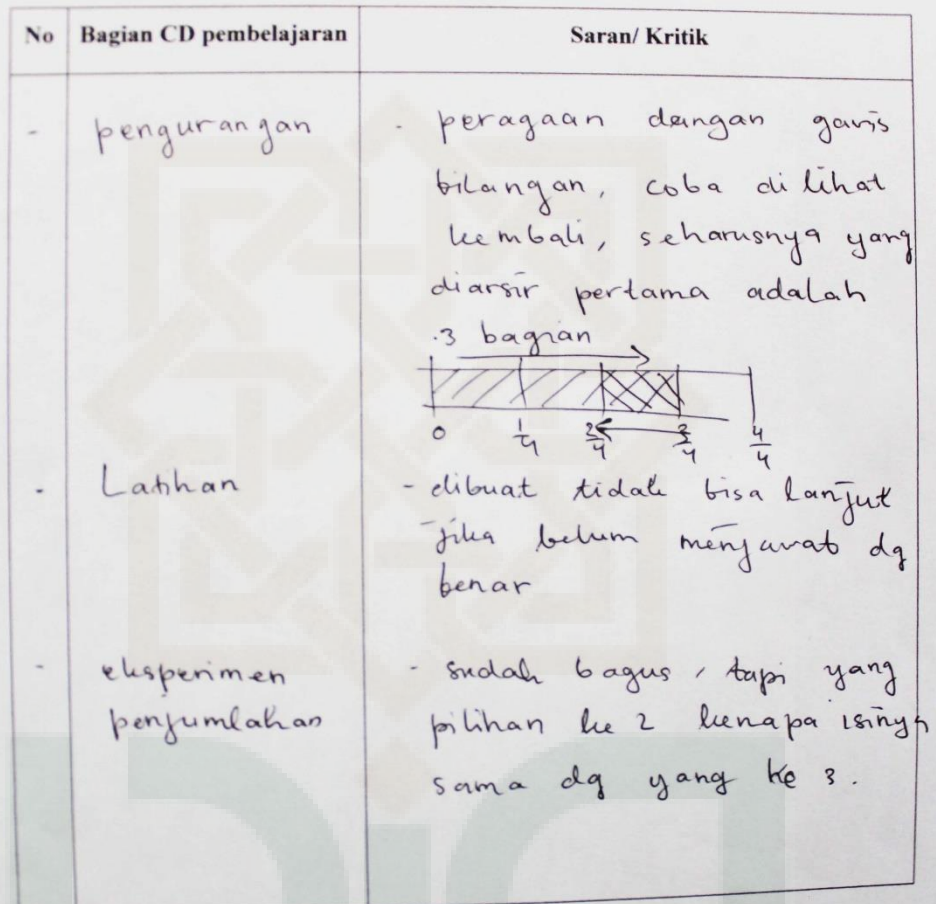 No Bagian CD pembelajaran Saran/ Kritik
- pengurangan - peragaan dengan garis
bilangan, coba di lihat
kembali, seharusnya yang
diarsir pertama adalah
.3 bagian
0 1/4 2/4 3/4 4/4
- Latihan - dibuat tidak bisa lanjut
jika belum menjawab dg
benar
- eksperimen - sudah bagus, tapi yang
penjumlahan pilihan ke 2 kenapa isinya
sama dg yang ke 3.